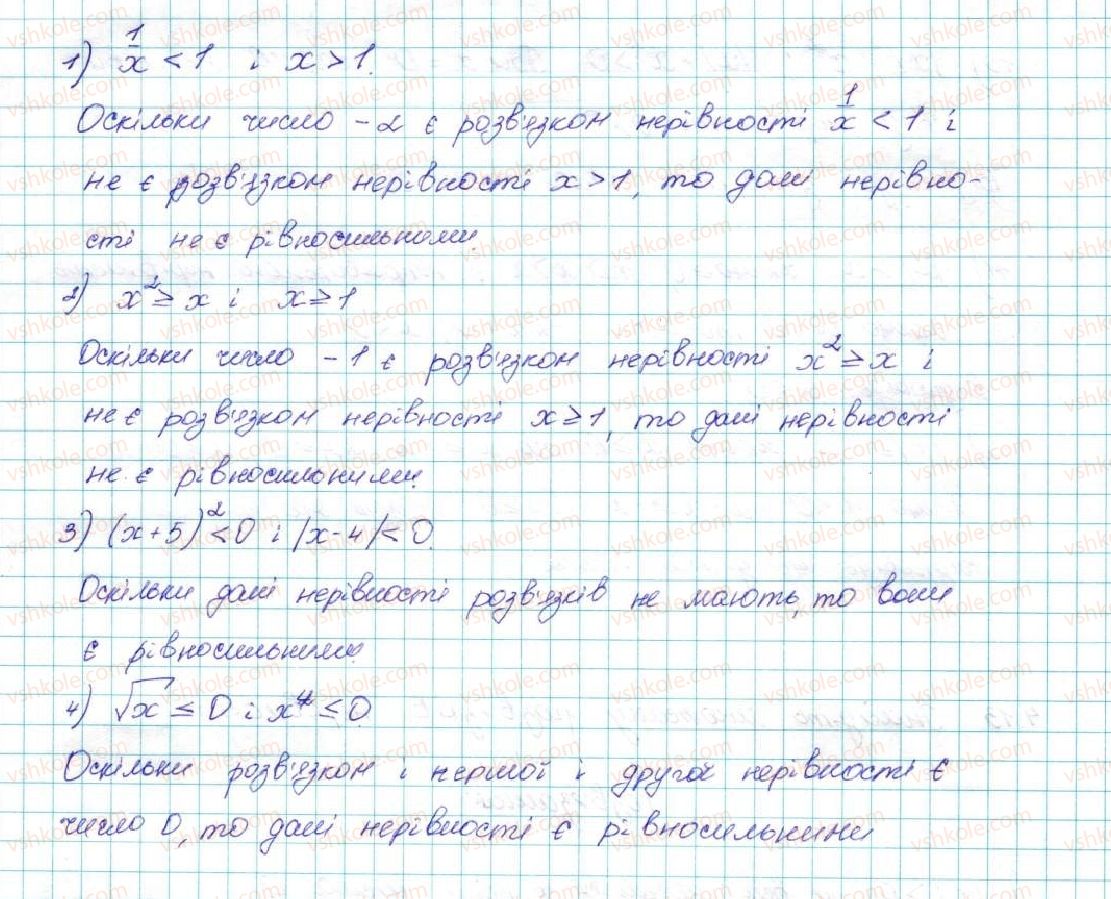 1) 1/x < 1 і x > 1.
Оскільки число -2 є розв'язком нерівності 1/x < 1 і
не є розв'язком нерівності x > 1, то дані нерівно-
сті не є рівносильними.
2) x² ≥ x і x ≥ 1
Оскільки число -1 є розв'язком нерівності x² ≥ x і
не є розв'язком нерівності x ≥ 1, то дані нерівності
не є рівносильними.
3) (x+5)² < 0 і |x-4| < 0.
Оскільки дані нерівності розв'язків не мають, то вони
є рівносильними.
4) √x ≤ 0 і x⁴ ≤ 0.
Оскільки розв'язком і першої і другої нерівності є
число 0, то дані нерівності є рівносильними
vshkole.com